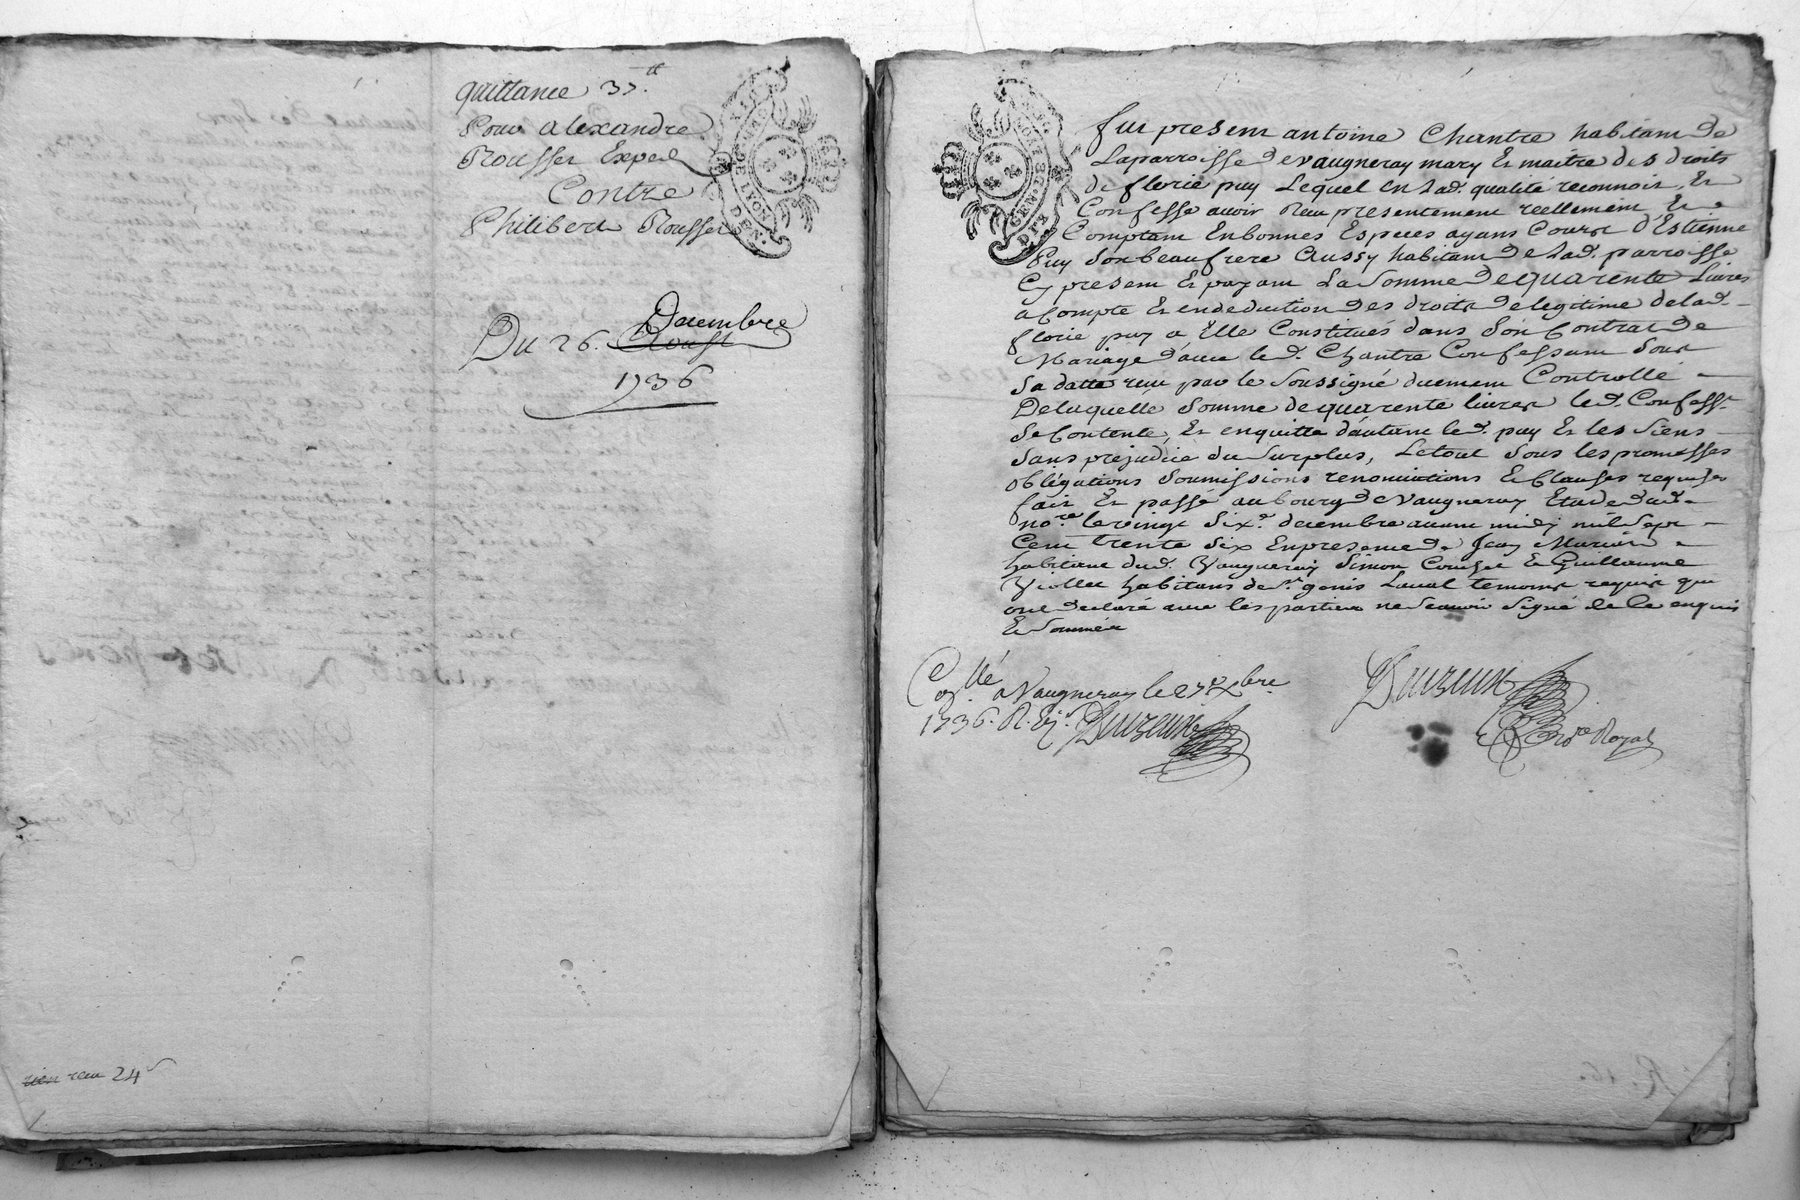 quittance 37.tt
Pour alexandre
Rousset Exped
Contre
Philibert Rousset
Decembre
Du 26. Aoust
1736
rien reçu 24 s
GEN. DE LYON
fut present antoine Chantre habitant de
Laparroisse de vaugneray mary Et maitre des droits
de florie puy Lequel en lad. qualité reconnoit Et
Confesse avoir Reçu presentement reellement Et
Comptant En bonnes Especes ayans Cours d'Estienne
Puy son beaufrere Aussy habitant de lad. parroisse
Cy present Et payant La somme de quarente Livres
a Compte Et en deduction des droits de legitime de lad.
florie puy a Elle Constitués dans son Contrat de
Mariage d'avec led. Chantre Confessant sous
sa datte reçu par le soussigné duement Controllé
De laquelle somme de quarente livres led. Confesst.
Se Contente, Et en quitte d'autant led. puy Et les siens
sans prejudice du surplus, Le tout sous les promesses
obligations soumissions renonciations Et Clauses requises
fait Et passé au bourg de Vaugneray Etude dud.
nore. le vingt sixe. decembre avant midy mil sept
Cent trente six En presence de Jean
habitant dud. Vaugneray Simon Et Guillaume
Viollet habitans de st. genis Laval temoins requis qui
ont declaré avec les parties ne sçavoir signé de ce enquis
Et sommés
Conllé a Vaugneray le 27e Xbre.
1736. R.
nore Royal